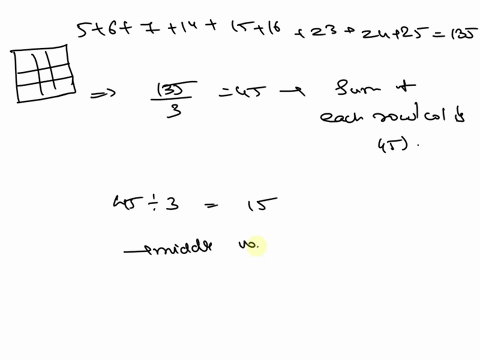 5+6+7+14+15+16+23+24+25=135
⇒ 135/3 = 45 → Sum of
each row/col is
45).
45 ÷ 3 = 15
→ middle no.